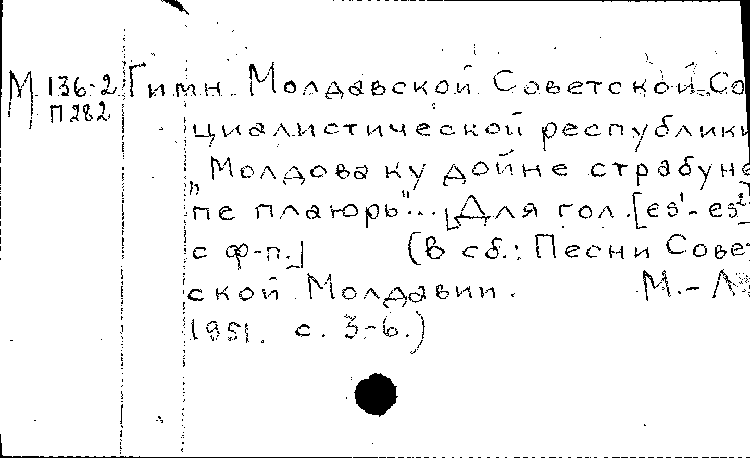 М 136-2 Гимн Молдавской Советской Со
П 282
циалистической республики
„Молдова ку дойне страбуне
пе плаюрь"... [Для гол. [es¹- es²]
с ф-п.] (В сб.: Песни Совет
ской Молдавии. М.-Л
1951. с. 3-6.)